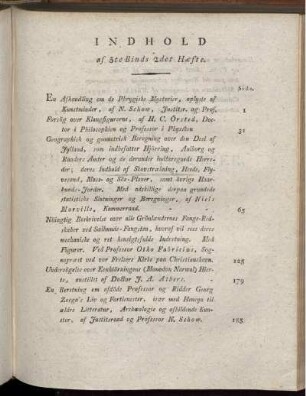 INDHOLD
af 5te Binds 2det Hæfte.
Side.
En Afhandling om de Phrygiske Mysterier, oplyste af
Kunstminder, af N. Schow, Justitsr. og Prof. 1
Forsög over Klangfigurerne, af H. C. Örsted, Doc-
tor i Philosophien og Professor i Physiken 31
Geographisk og geometrisk Beregning over den Deel af
Jylland, som indbefatter Hjörring, Aalborg og
Randers Amter og de derunder henhörende Herre-
der; deres Indhold af Skovstrækning, Heede, Fly-
vesand, Mose- og Söe-Pletter, samt övrige
Jorder. Med adskillige derpaa grundede
statistiske Slutninger og Beregninger, af Niels
Morville, Kammerraad. 63
Nöiagtig Beskrivelse over alle Grönlændernes Fange-Red-
skaber ved Sælhunde-Fangsten, hvoraf vil sees deres
mechaniske og ret hensigtsfulde Indretning. Med
Figurer. Ved Professor Otho Fabricius, Sog-
nepræst ved vor Frelsers Kirke paa Christianshavn. 125
Undersögelse over Eenhiörningens (Monodon Narwal) Hier-
te, anstillet af Doctor J. A. Albers. 179
En Beretning om afdöde Professor og Ridder Georg
Zoega's Liv og Fortienester, især med Hensyn til
ældre Litteratur, Archæologie og afbildende Kun-
ster, af Justitsraad og Professor N. Schow. 185